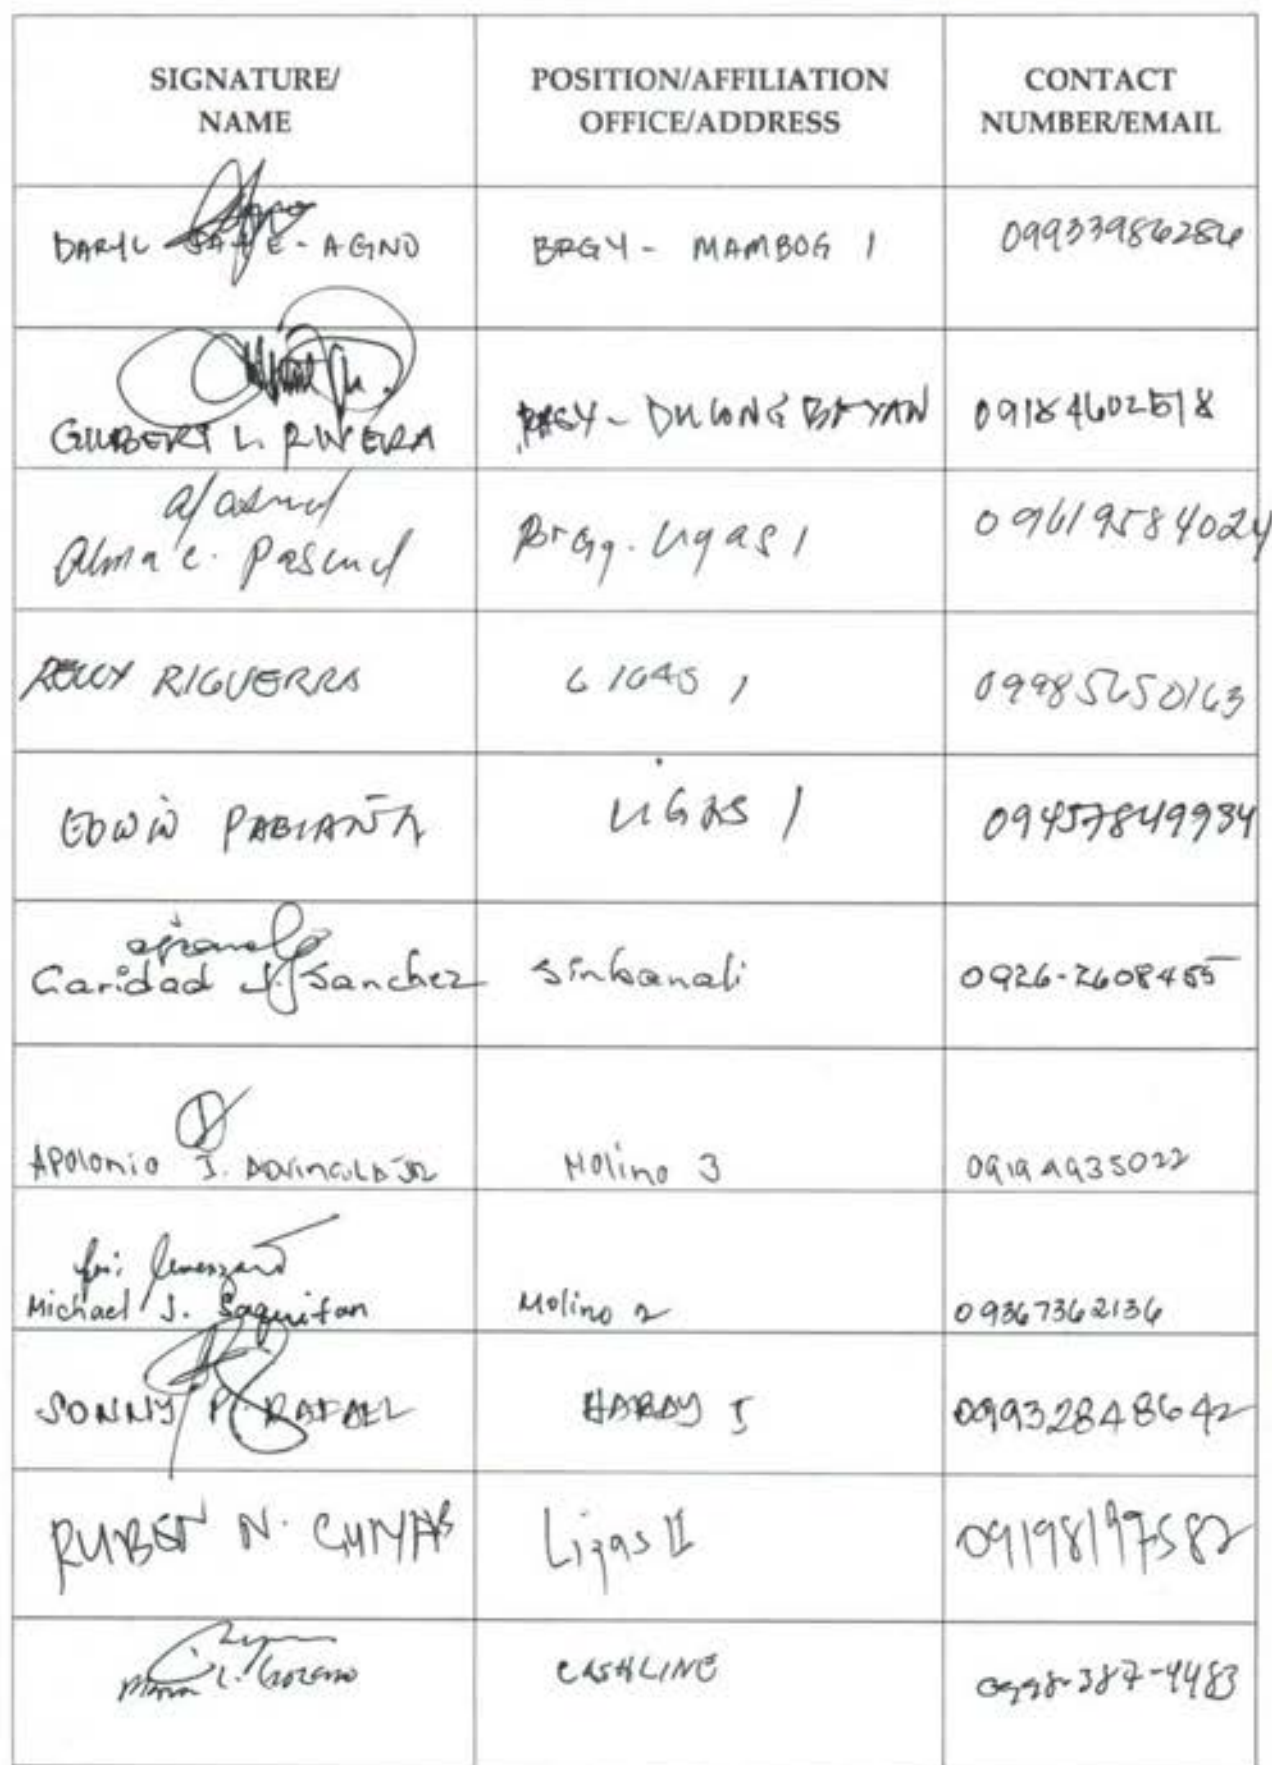 SIGNATURE/
NAME
POSITION/AFFILIATION
OFFICE/ADDRESS
CONTACT
NUMBER/EMAIL
DARYL - AGNO
BRGY - MAMBOG 1
09933986286
GILBERT L. RIVERA
BRGY - DULONG BAYAN
09184602518
Alma C. Pascual
Brgy. Ligas 1
09619584024
RIGUERRA
LIGAS 1
09985650163
EDWIN PABIAÑA
LIGAS 1
09457849934
Caridad J. Sanchez
Sinbanali
0926-2608455
Apolonio J.
Molino 3
09194935022
for:
Michael J. Saquitan
Molino 2
09367362136
SONNY P. RAFAEL
HABAY I
09932848642
RUBEN N. CUYAB
Ligas II
09198197582
L.
CASHLINE
0998-387-4483